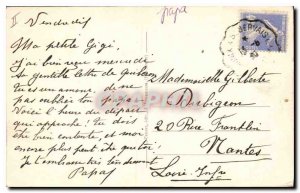 II
Vendredi
papa
Ma petite Gigi,
J'ai bien reçu mercredi
ta gentille lettre de
Tu es un amour, de ne
pas oublier ton papa
Voici l'heure du départ
qui approche; tu dois
être bien contente, et moi
encore plus peut être quitte
Je t'embrasse bien tendrement
Papa
Mademoiselle Gilberte
Dubigeon
20 Rue Franklin
Nantes
Loire-Infre